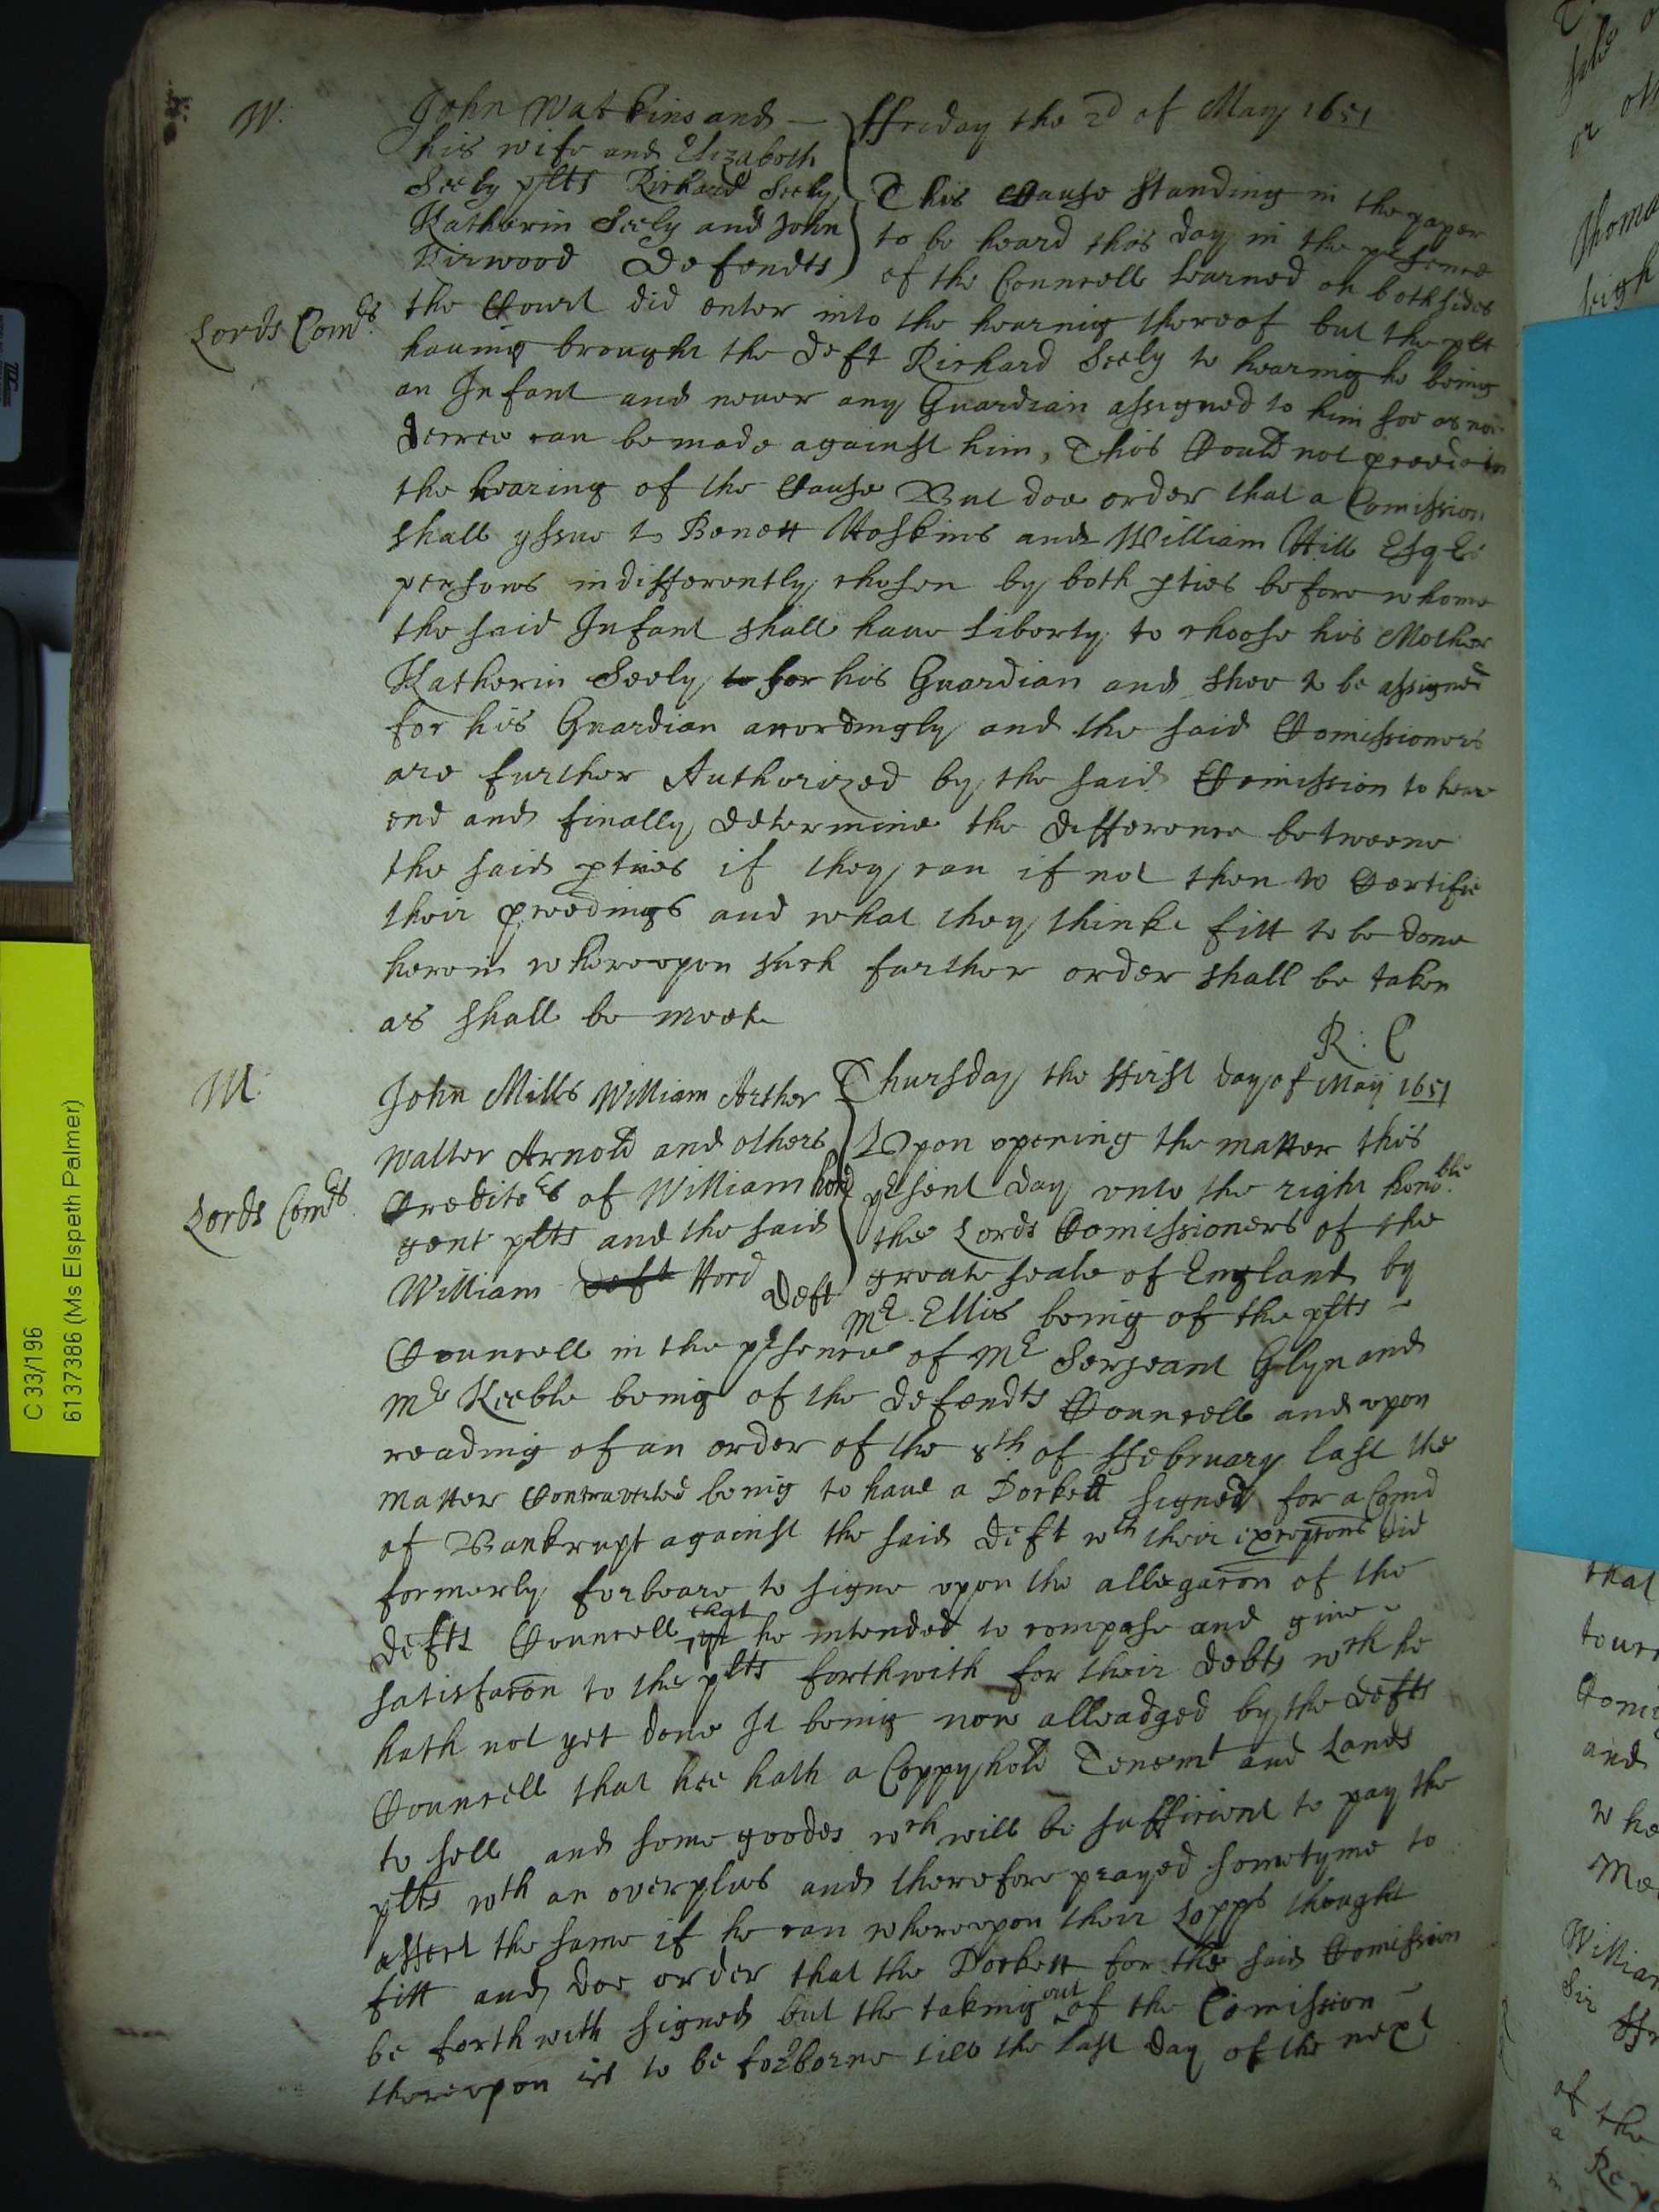 W.
John Watkins and
his wife and Elizabeth
Seely plts Richard Seely
Katherin Seely and John
Kirwood Defendts
ffriday the 2d of May 1651
This Cause standing in the paper
to be heard this day in the psence
of the Councell learned on both sides
Lords Comrs.
the Court did enter into the hearing thereof but the plt
haueing brought the deft Richard Seely to hearing he being
an Infant and neuer any Guardian assigned to him soe as noe
decree can be made against him, This Could not proceed to
the hearing of the Cause But doe order that a Comission
shall yssue to Benett Hoskins and William Hill Esqrs
persons indifferently chosen by both pties before whome
the said Infant shall haue liberty to choose his Mother
Katherin Seely to for his Guardian and shee to be assigned
for his Guardian accordingly and the said Comissioners
are further Authorized by the said Comission to heare
end and finally determine the difference betweene
the said pties if they can if not then to Certifie
their pceedings and what they thinke fitt to be done
herein whereupon such further order shall be taken
as shall be meete
R: C
M.
John Mills William Arther
Walter Arnold and others
Creditors of William Hord
gent plts and the said
William Deft Hord Deft
Thursday the ffirst day of May 1651
Lords Comrs.
Vpon opening the matter this
psent day vnto the right honoble.
the Lords Comissioners of the
greate seale of England by
Mr. Ellis being of the plts
Councell in the psence of Mr Serjeant Glyn and
Mr Keeble being of the defendts Councell and vpon
reading of an order of the 8th of ffebruary last the
matter Controverted being to haue a Dockett signed for a
of Bankrupt against the said Deft wch their did
formerly forbeare to signe vpon the allegacon of the
defts Councell that he intended to compose and giue
satisfacon to the plts forthwith for their debts wch he
hath not yet done It being now alleadged by the defts
Councell that hee hath a Coppyhold Tenemt and Lands
to sell and some goodes wch will be sufficient to pay the
plts wth an overplus and therefore prayed sometyme to
effect the same if he can whereupon their Lopps thought
fitt and doe order that the Dockett for the said Comission
be forthwith signed but the taking out of the Comission
therevpon is to be forborne till the last day of the next
C 33/196
6137386 (Ms Elspeth Palmer)